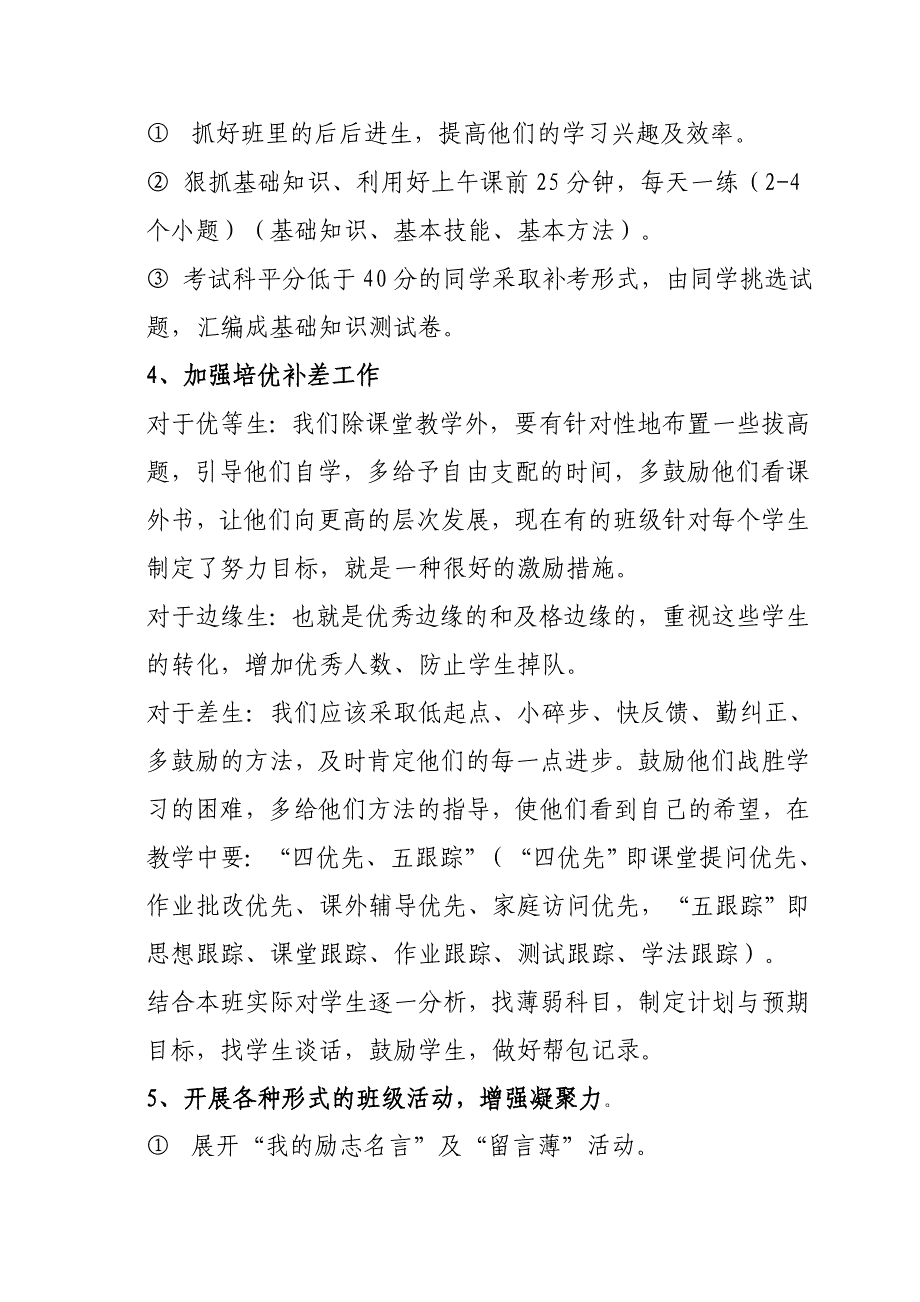 ① 抓好班里的后后进生，提高他们的学习兴趣及效率。
② 狠抓基础知识、利用好上午课前 25 分钟，每天一练（2-4
个小题）（基础知识、基本技能、基本方法）。
③ 考试科平分低于 40 分的同学采取补考形式，由同学挑选试
题，汇编成基础知识测试卷。
4、加强培优补差工作
对于优等生：我们除课堂教学外，要有针对性地布置一些拔高
题，引导他们自学，多给予自由支配的时间，多鼓励他们看课
外书，让他们向更高的层次发展，现在有的班级针对每个学生
制定了努力目标，就是一种很好的激励措施。
对于边缘生：也就是优秀边缘的和及格边缘的，重视这些学生
的转化，增加优秀人数、防止学生掉队。
对于差生：我们应该采取低起点、小碎步、快反馈、勤纠正、
多鼓励的方法，及时肯定他们的每一点进步。鼓励他们战胜学
习的困难，多给他们方法的指导，使他们看到自己的希望，在
教学中要：“四优先、五跟踪”（“四优先”即课堂提问优先、
作业批改优先、课外辅导优先、家庭访问优先，“五跟踪”即
思想跟踪、课堂跟踪、作业跟踪、测试跟踪、学法跟踪）。
结合本班实际对学生逐一分析，找薄弱科目，制定计划与预期
目标，找学生谈话，鼓励学生，做好帮包记录。
5、开展各种形式的班级活动，增强凝聚力。
① 展开“我的励志名言”及“留言薄”活动。